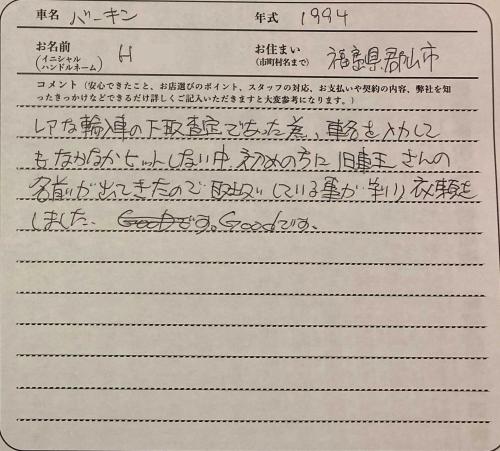 車名 バーキン 年式 1994
お名前 (イニシャル ハンドルネーム) H お住まい (市町村名まで) 福島県郡山市
コメント(安心できたこと、お店選びのポイント、スタッフの対応、お支払いや契約の内容、弊社を知
ったきっかけなどできるだけ詳しくご記入いただきますと大変参考になります。)
レアな輸入車の下取査定であった為、車名を入力して
もなかなかヒットしない中 初めの方に旧車王さんの
名前が出てきたので 取扱っている事が判り 依頼を
しました。 Goodです。Goodです。